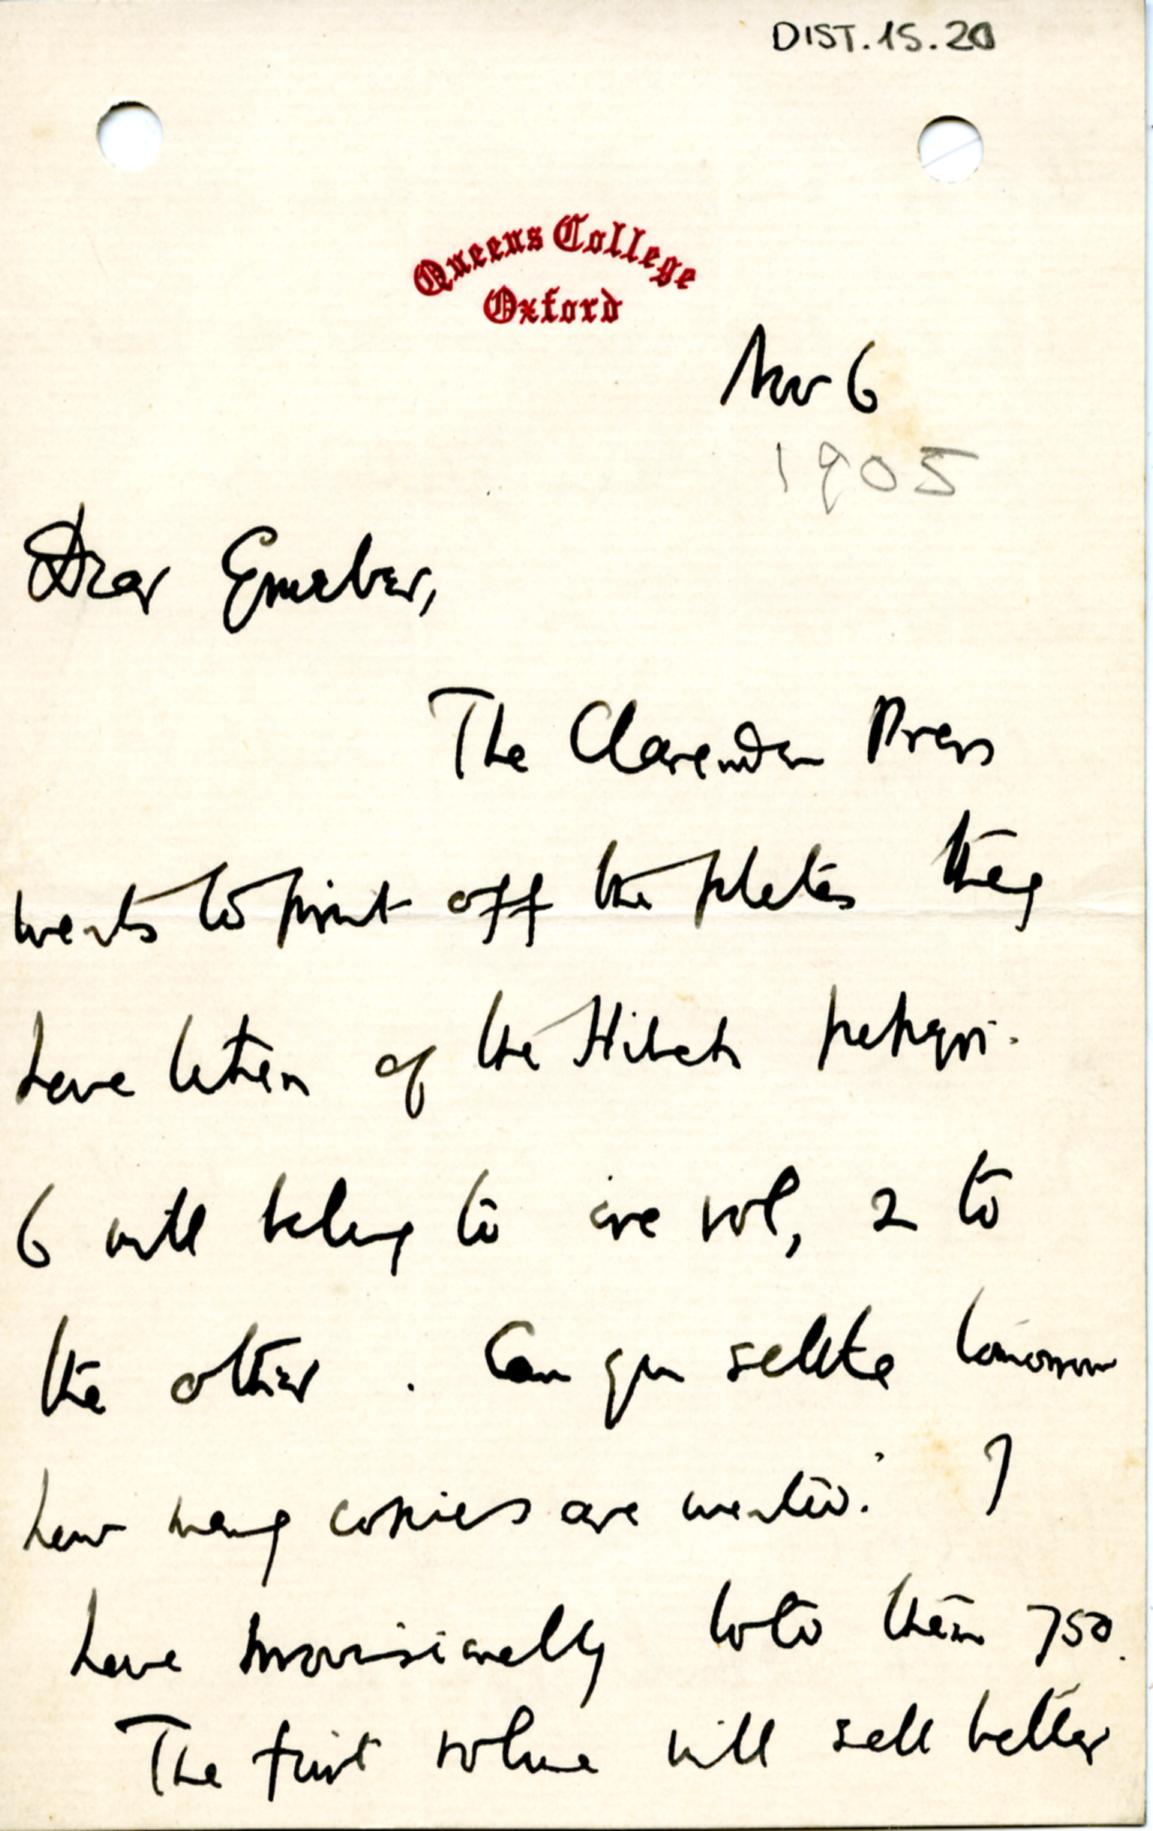 DIST.15.20
Queens College
Oxford
Nov 6
1905
Dear
The Clarendon Press
wants to print off the plates they
have taken of the Hibeh papyri.
6 will belong to one vol, 2 to
the other. Can you settle tomorrow
how many copies are wanted? I
have provisionally told them 750.
The first volume will sell better